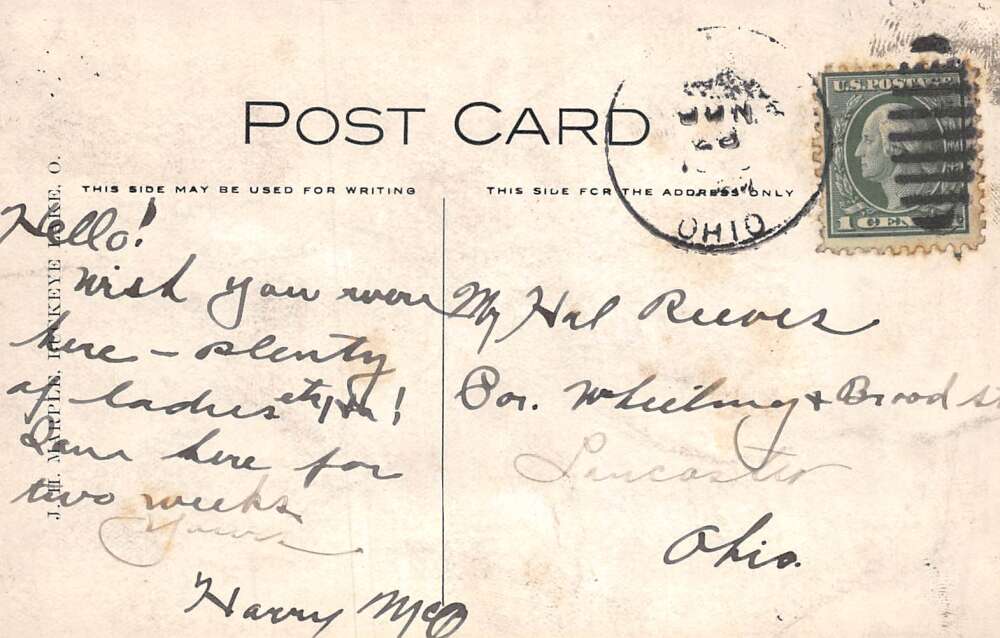 POST CARD
THIS SIDE MAY BE USED FOR WRITING
THIS SIDE FOR THE ADDRESS ONLY
JUN
28
OHIO
U.S. POSTAGE
1 CENT
J. H. MARPLE, BUCKEYE LAKE, O.
Hello!
Wish you were
here – plenty
of ladies etc,!
I am here for
two weeks
Yours
Harry McO
Mr Hal Reeves
Cor. Wheeling + Broad st
Lancaster
Ohio.